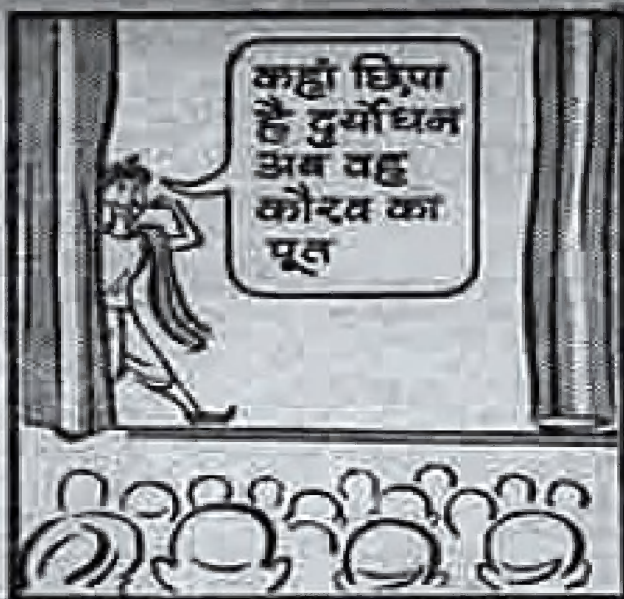 कहां छिपा
है दुर्योधन
अब वह
कौरव का
पूत